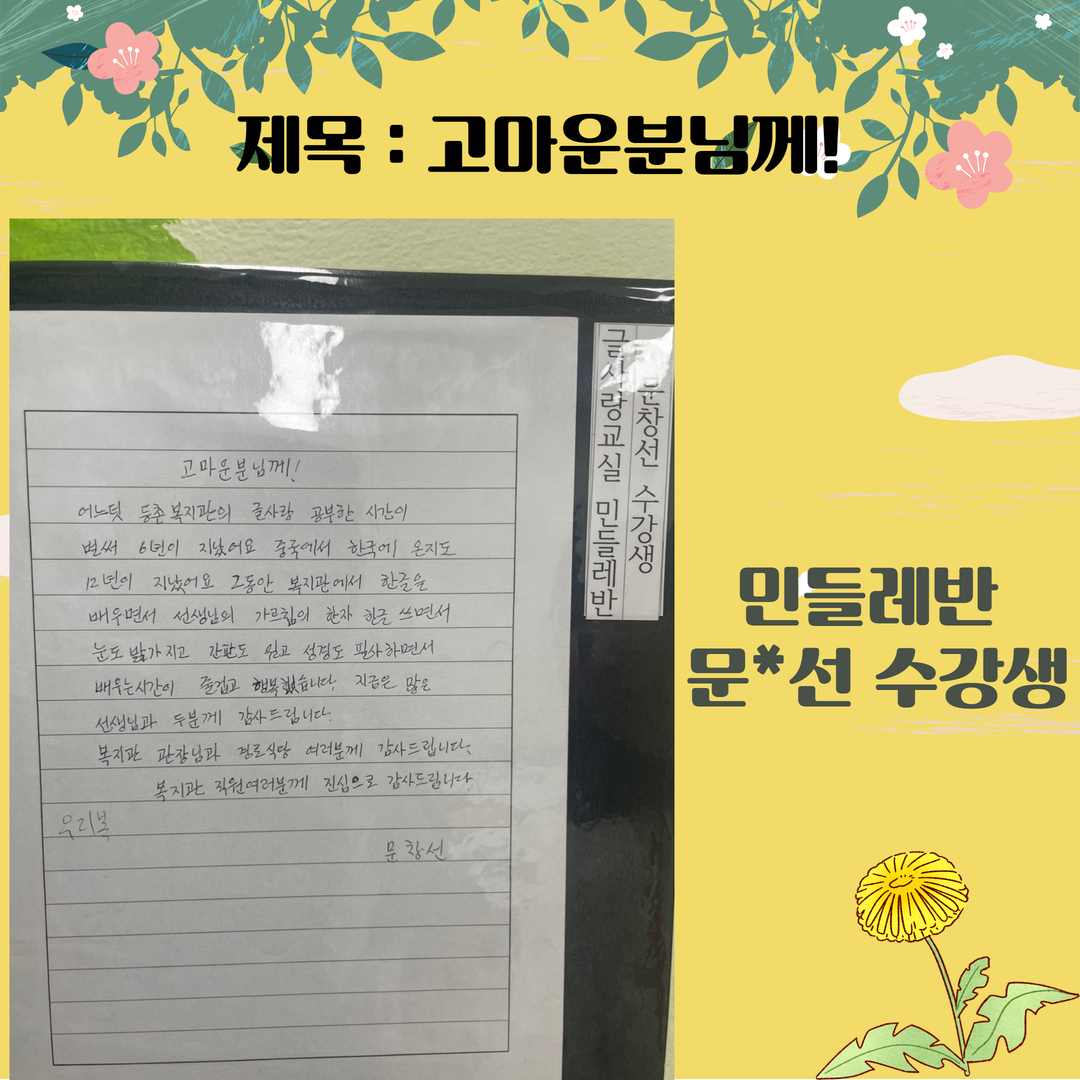 제목 : 고마운분님께!
글사랑교실 민들레반
문창선 수강생
고마운분님께!
어느덧 등촌복지관의 글사랑 공부한 시간이
벌써 6년이 지났어요 중국에서 한국에 온지도
12년이 지났어요 그동안 복지관에서 한글을
배우면서 선생님의 가르침의 한자 한글 쓰면서
눈도 밝가지고 간판도 읽고 성경도 필사하면서
배우는시간이 즐겁고 행복했습니다. 지금은 많은
선생님과 두분께 감사드립니다.
복지관 관장님과 경로식당 여러분께 감사드립니다.
복지관 직원여러분께 진심으로 감사드립니다
우리복
문창선
민들레반
문*선 수강생